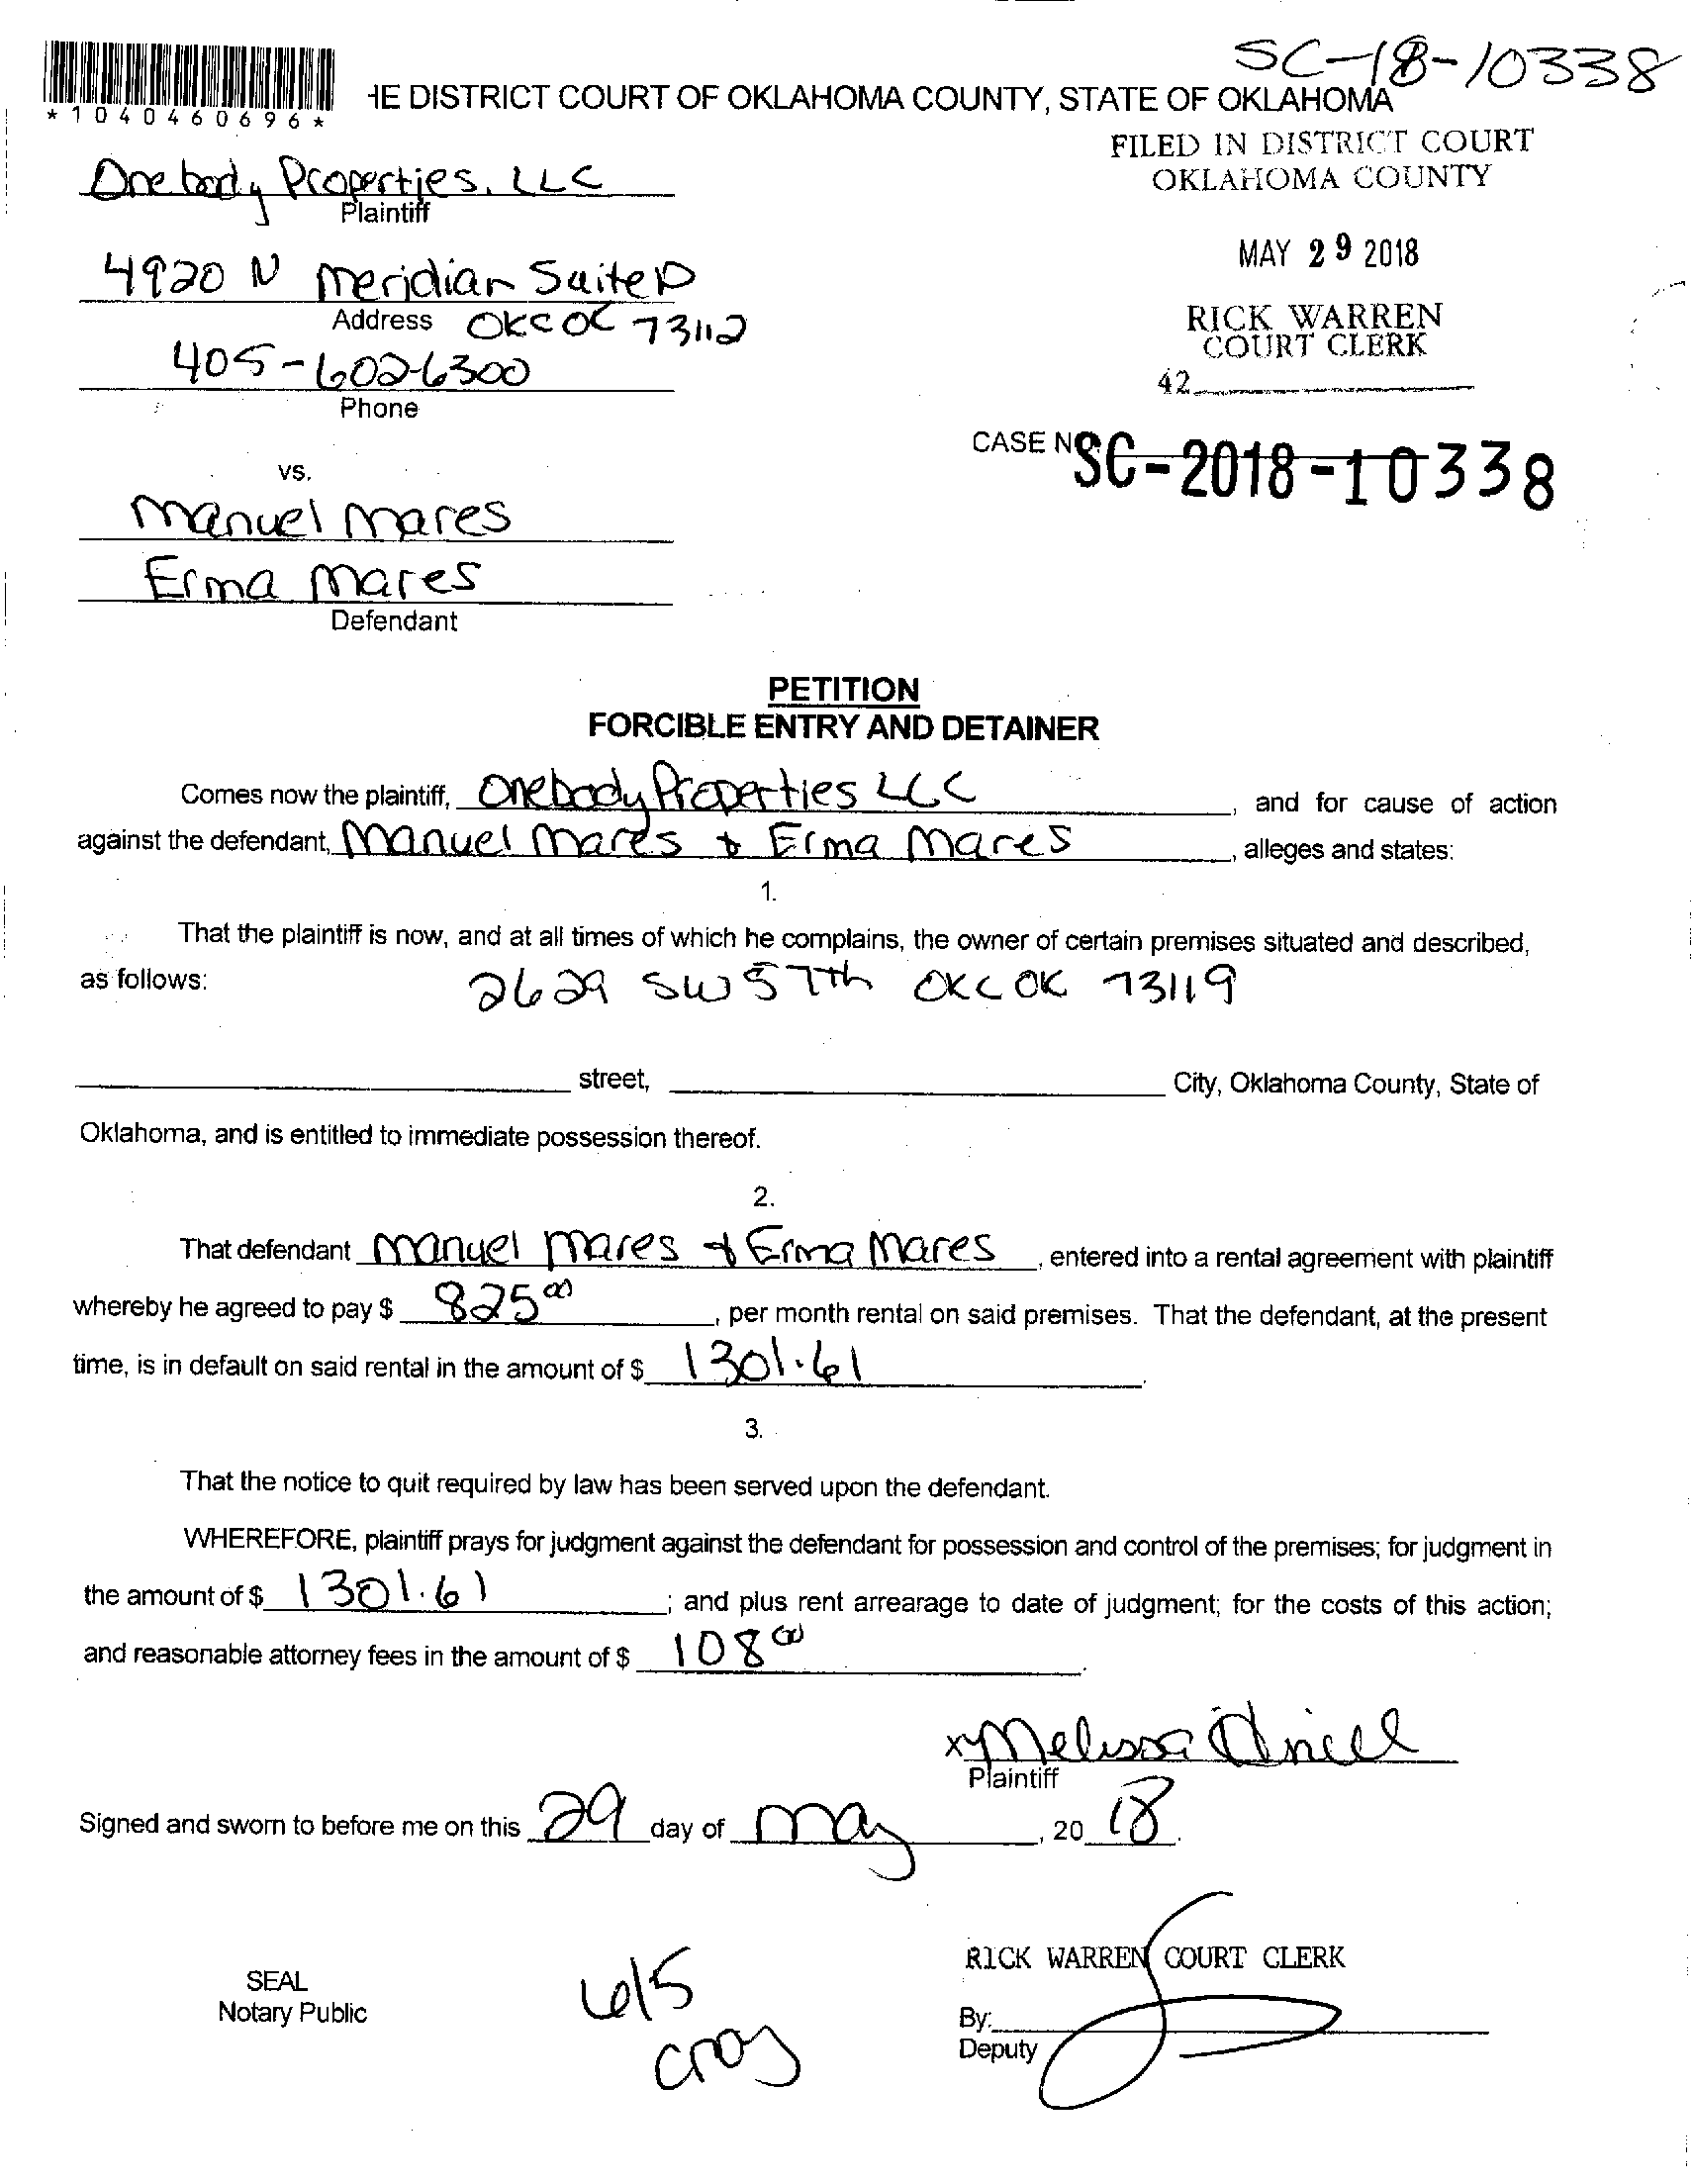 SC-18-10338
*1040460696*
HE DISTRICT COURT OF OKLAHOMA COUNTY, STATE OF OKLAHOMA
FILED IN DISTRICT COURT
OKLAHOMA COUNTY
Onebody Properties, LLC
Plaintiff
MAY 29 2018
4920 N Meridian Suite D
Address OKC OK 73112
RICK WARREN
COURT CLERK
405-602-6300
42
Phone
CASE NO
SC-2018-10338
vs.
Manuel Mares
Erma Mares
Defendant
PETITION
FORCIBLE ENTRY AND DETAINER
Comes now the plaintiff, Onebody Properties LLC, and for cause of action
against the defendant, Manuel Mares & Erma Mares, alleges and states:
1.
That the plaintiff is now, and at all times of which he complains, the owner of certain premises situated and described,
as follows: 2629 SW 57th OKC OK 73119
street, City, Oklahoma County, State of
Oklahoma, and is entitled to immediate possession thereof.
2.
That defendant Manuel Mares & Erma Mares, entered into a rental agreement with plaintiff
whereby he agreed to pay $ 825 00, per month rental on said premises. That the defendant, at the present
time, is in default on said rental in the amount of $ 1301.61.
3.
That the notice to quit required by law has been served upon the defendant.
WHEREFORE, plaintiff prays for judgment against the defendant for possession and control of the premises; for judgment in
the amount of $ 1301.61; and plus rent arrearage to date of judgment; for the costs of this action;
and reasonable attorney fees in the amount of $ 108 00.
x Melissa
Plaintiff
Signed and sworn to before me on this 29 day of May, 2018.
RICK WARREN COURT CLERK
SEAL
Notary Public
6/5
By:
Deputy